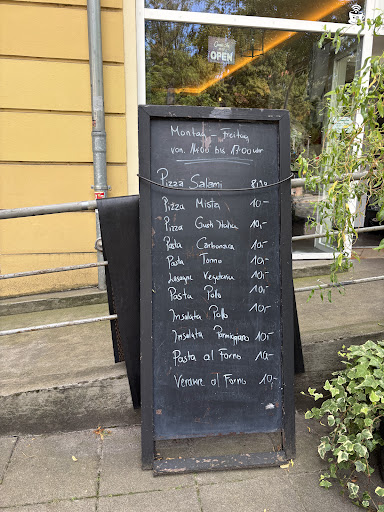 OPEN
Montag - freitag
von 14:00 bis 17:00 uhr
Pizza Salami
Pizza Mista 10,-
Pizza Gusti Italia 10,-
Pasta Carbonara 10,-
Pasta Torno 10,-
Lasagne Vegetaria 10,-
Pasta Pollo 10,-
Insalata Pollo 10,-
Insalata Parmigiano 10,-
Pasta al Forno 10,-
Verdure al Forno 10,-